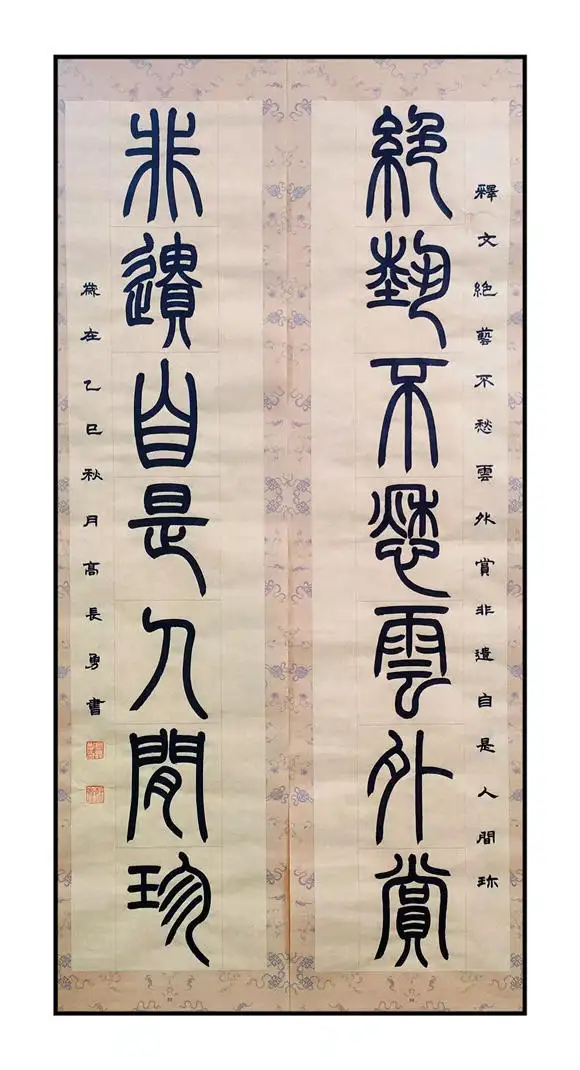 釋文絶藝不愁雲外賞非遺自是人間珎
絶埶不愁雲外賞
非遺自是人閒珍
歲在乙巳秋月高長勇書